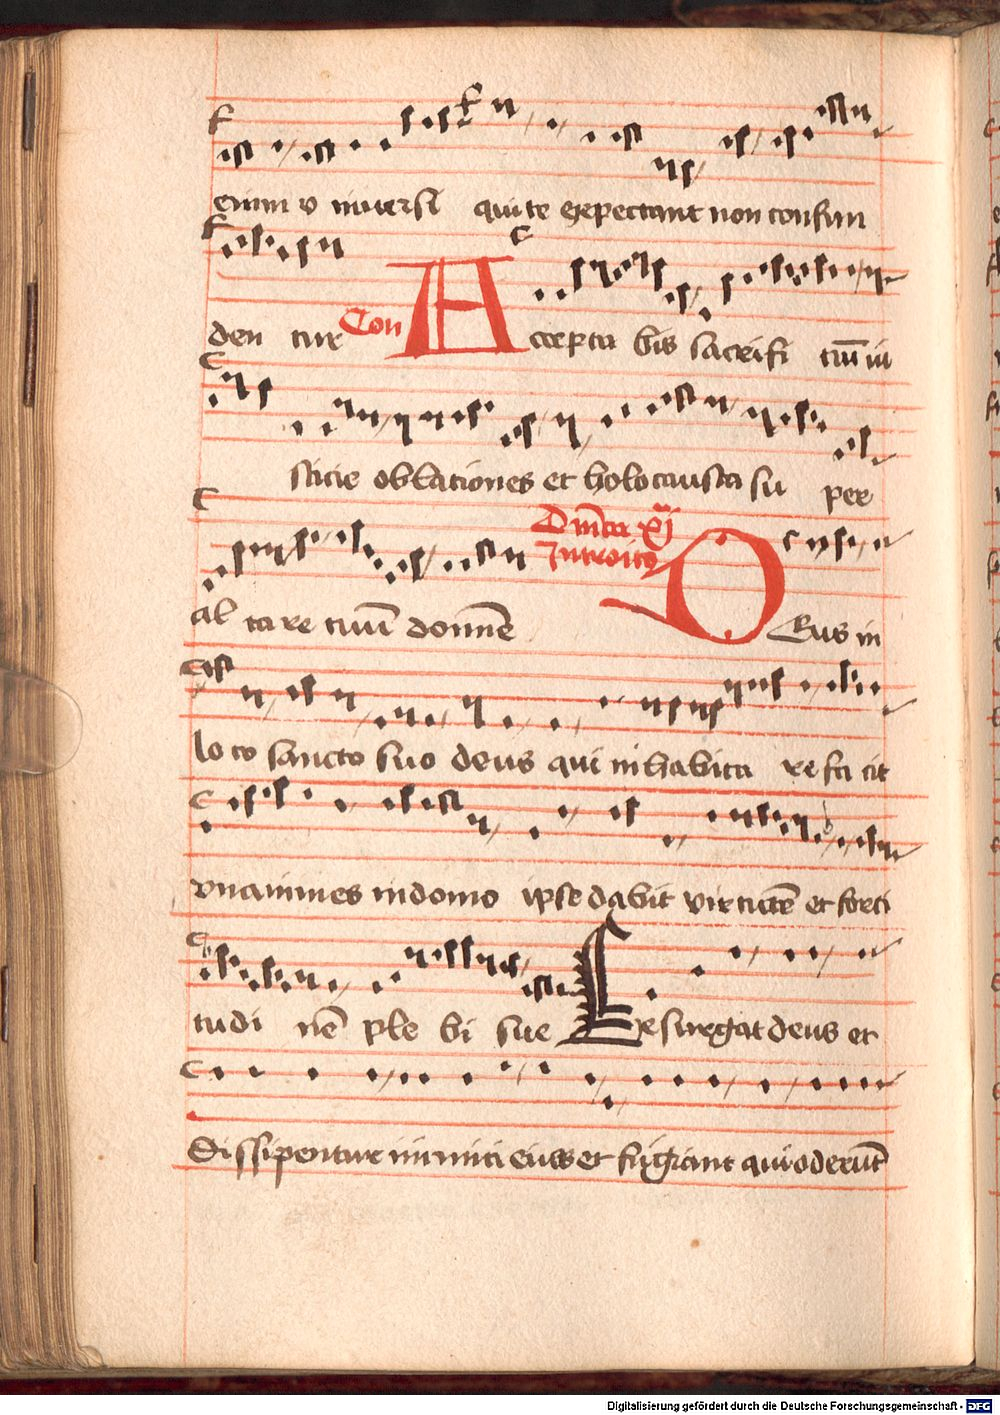 enim v niuersi qui te exspectant non confun
den tur Con Accepta bis sacrifi cium iu
sticie oblationes et holocausta su per
Dominica xj
Introitus
al ta re tuū domine Deus in
lo co sancto suo deus qui inhabita re fa cit
vnanimes in domo ipse dabit virtutē et forti
tudi nē ple bi sue Exsurgat deus et
dissipentur inimici eius et fugiant qui oderūt
Digitalisierung gefördert durch die Deutsche Forschungsgemeinschaft - DFG